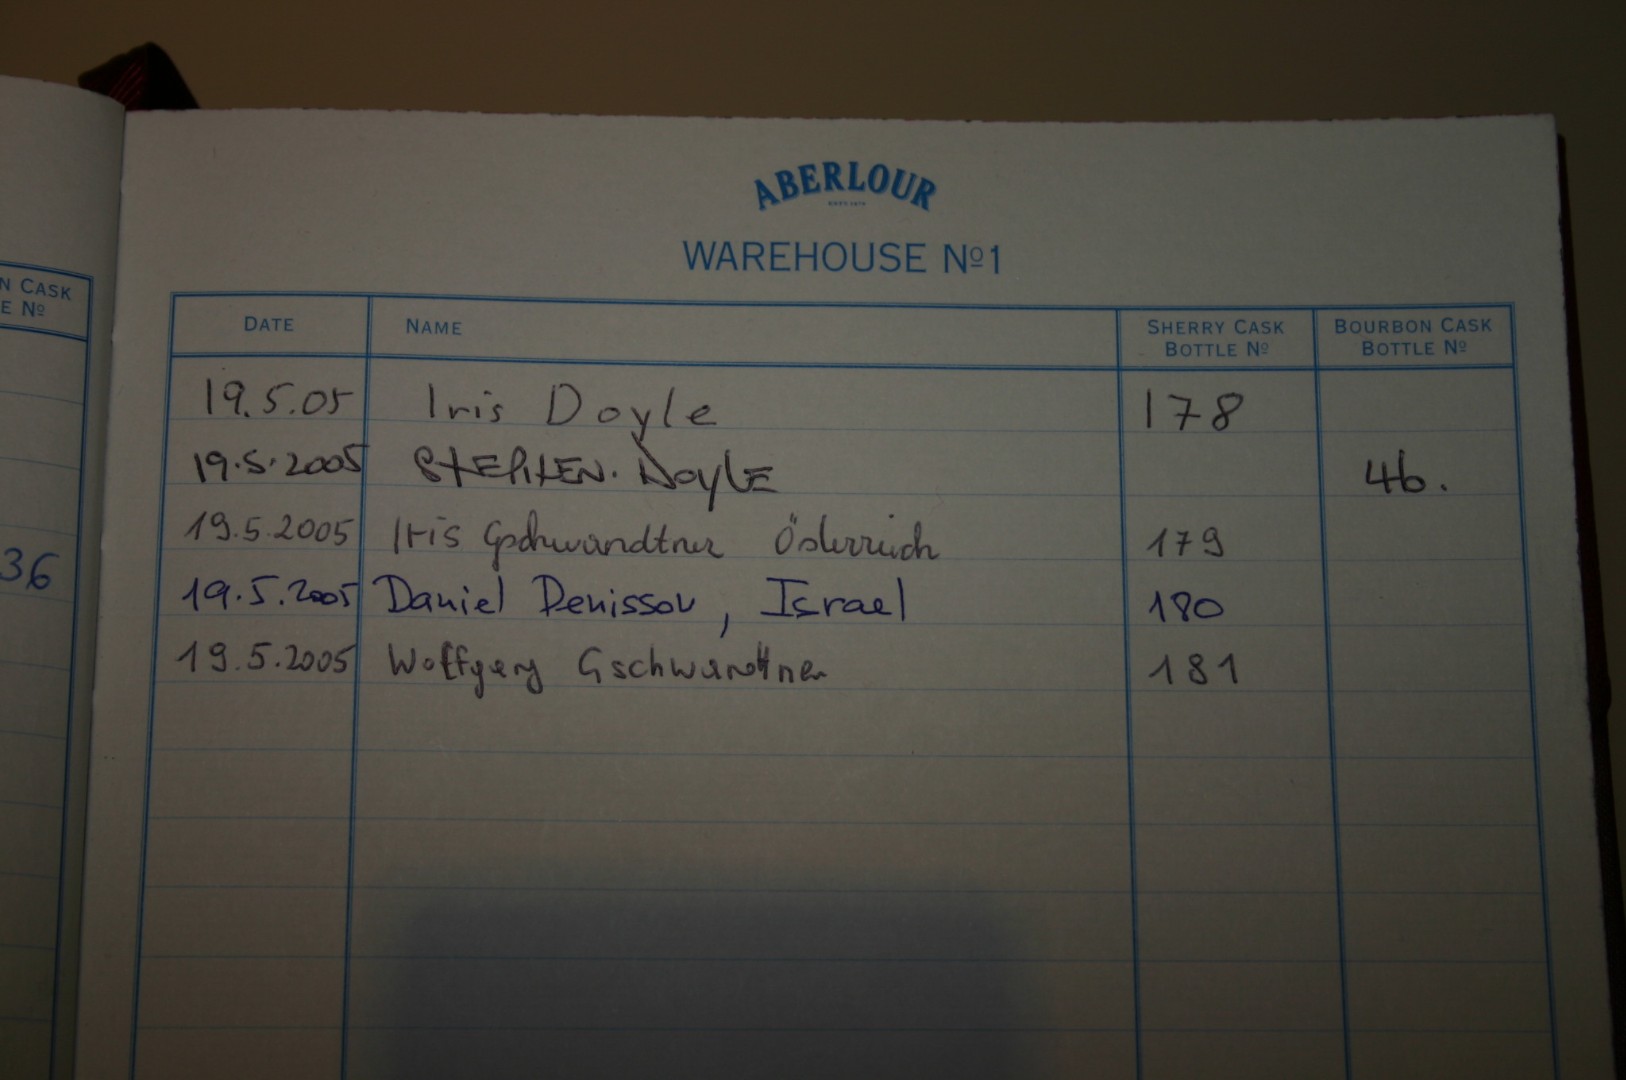 N CASK
E Nº
36
ABERLOUR
WAREHOUSE Nº1
DATE NAME SHERRY CASK BOTTLE Nº BOURBON CASK BOTTLE Nº
19.5.05 Iris Doyle 178
19.5.2005 STEPHEN. DOYLE 46.
19.5.2005 Iris Gschwandtner Österreich 179
19.5.2005 Daniel Denissov, Israel 180
19.5.2005 Wolfgang Gschwandtner 181